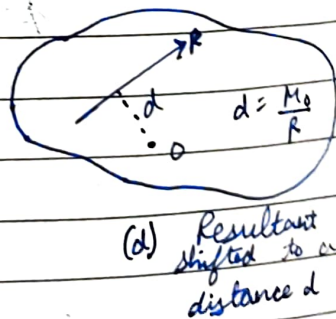 R
d
d = M₀/R
O
(d) Resultant
shifted to a
distance d